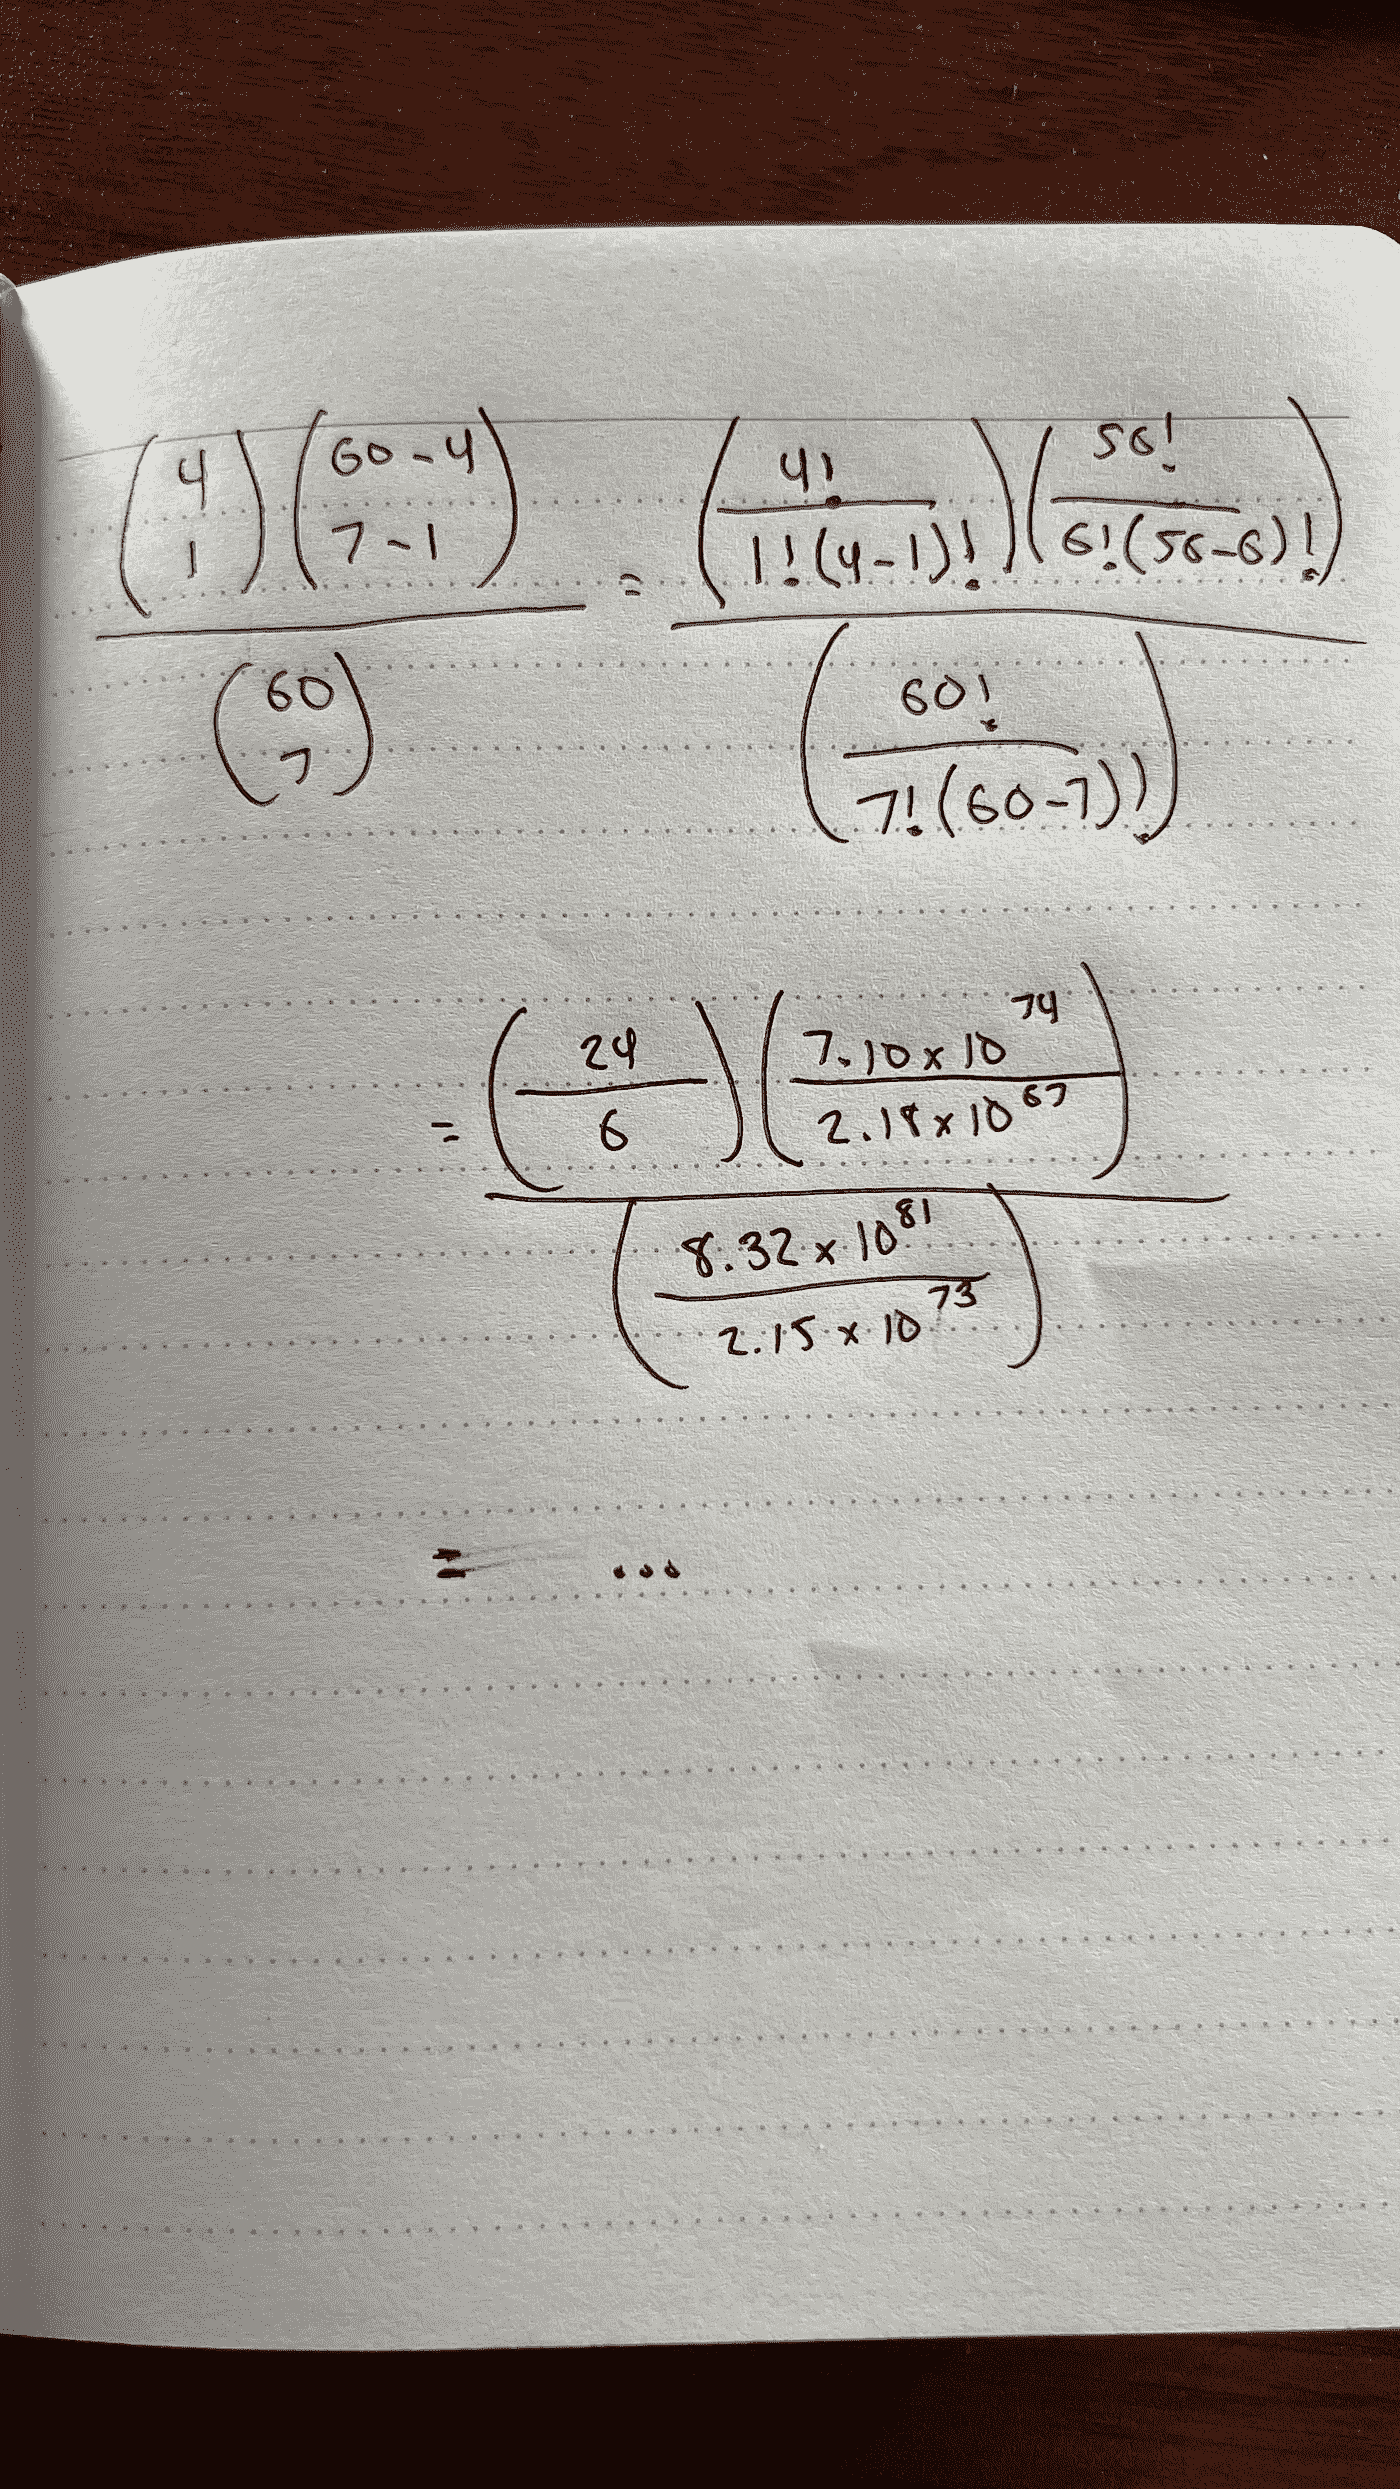 (4 1) (60-4 7-1) / (60 7) = (4! / 1!(4-1)!) (56! / 6!(56-6)!) / (60! / 7!(60-7)!)
= (24 / 6) (7.10 x 10^74 / 2.18 x 10^67) / (8.32 x 10^81 / 2.15 x 10^73)
= ...